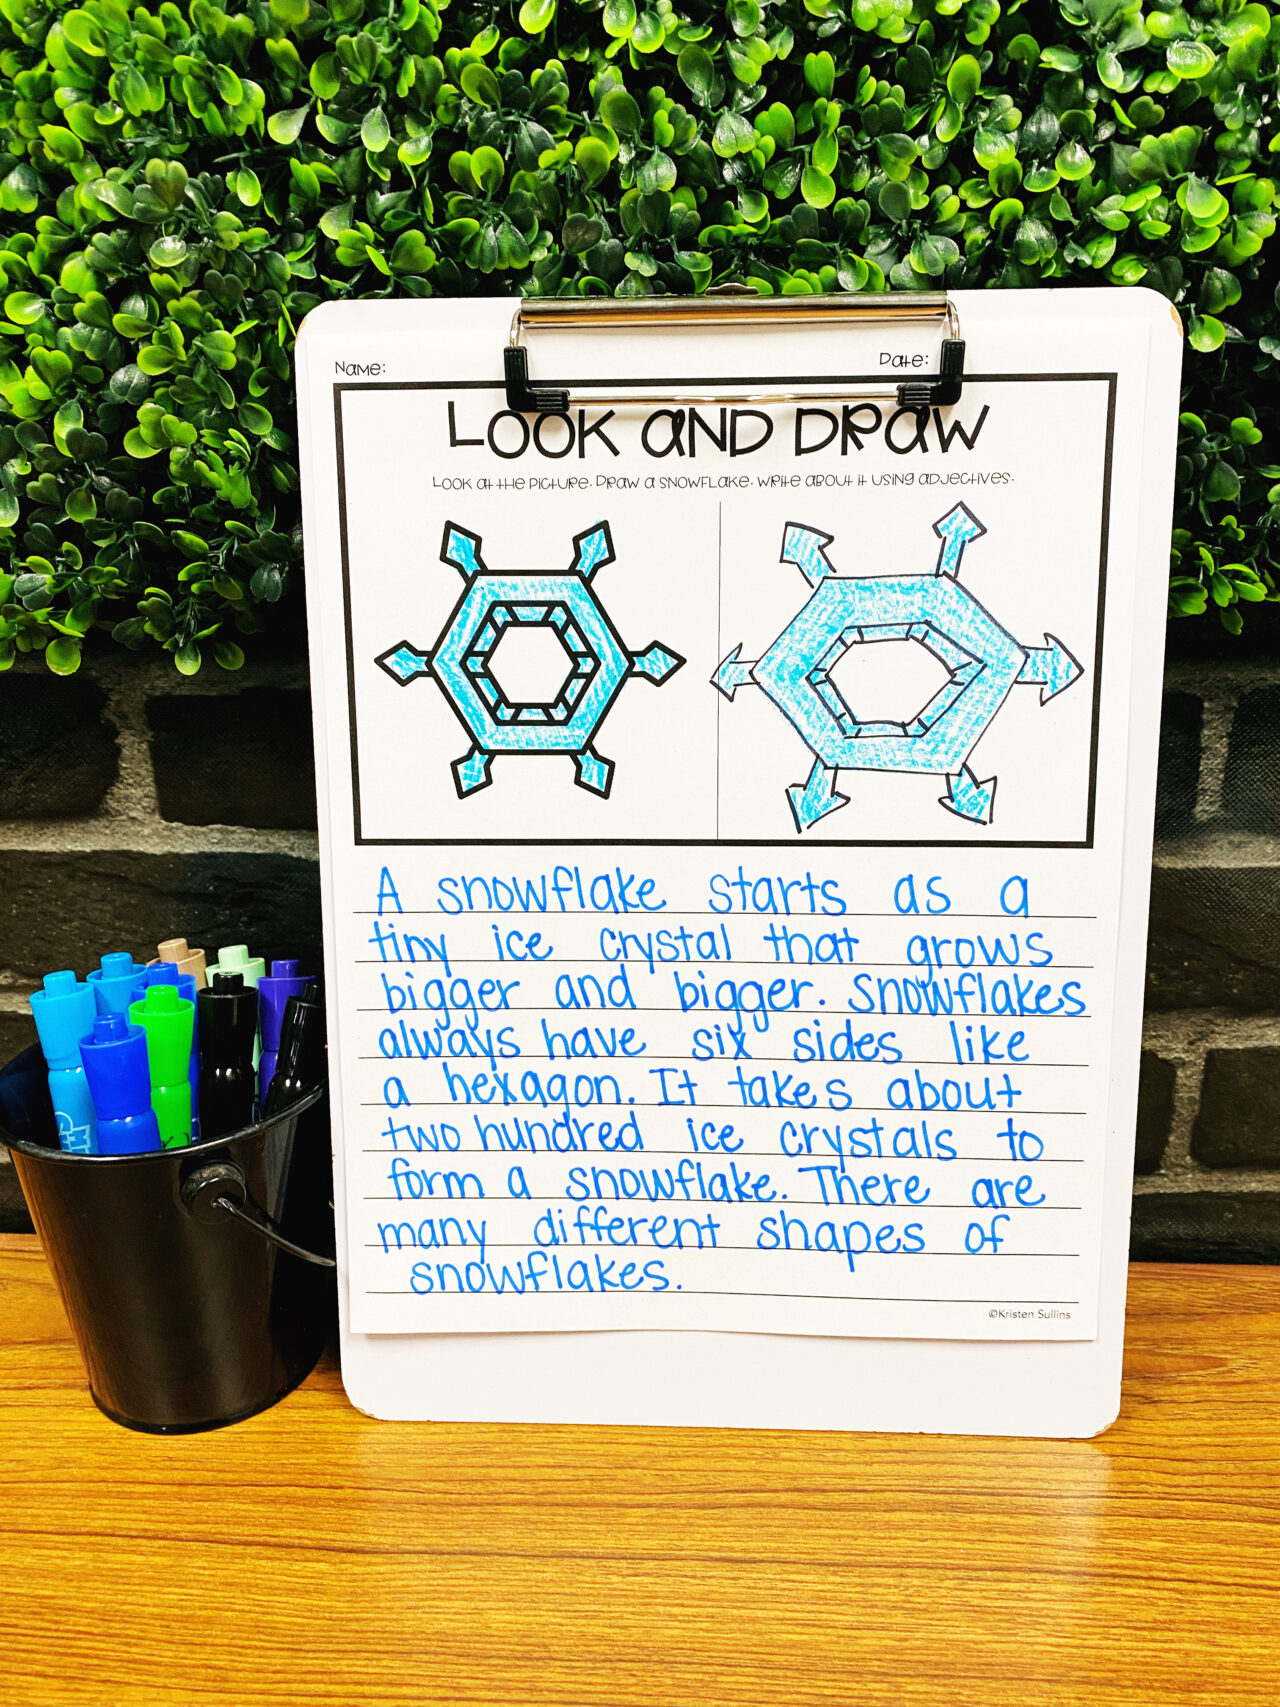 Name:
Date:
LOOK AND DRAW
LOOK AT THE PICTURE. DRAW A SNOWFLAKE. WRITE ABOUT IT USING ADJECTIVES.
A snowflake starts as a
tiny ice crystal that grows
bigger and bigger. Snowflakes
always have six sides like
a hexagon. It takes about
two hundred ice crystals to
form a snowflake. There are
many different shapes of
snowflakes.
©Kristen Sullins